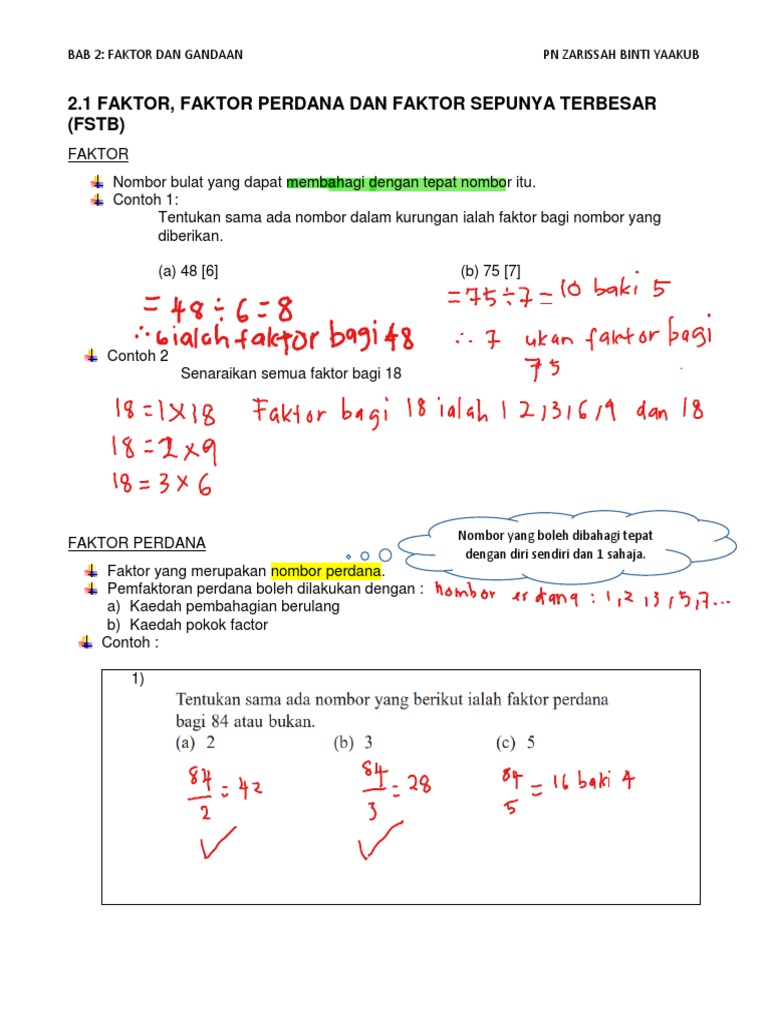 BAB 2: FAKTOR DAN GANDAAN PN ZARISSAH BINTI YAAKUB
2.1 FAKTOR, FAKTOR PERDANA DAN FAKTOR SEPUNYA TERBESAR
(FSTB)
FAKTOR
Nombor bulat yang dapat membahagi dengan tepat nombor itu.
Contoh 1:
Tentukan sama ada nombor dalam kurungan ialah faktor bagi nombor yang
diberikan.
(a) 48 [6] (b) 75 [7]
= 48 ÷ 6 = 8
∴ 6 ialah faktor bagi 48
= 75 ÷ 7 = 10 baki 5
∴ 7 ukan faktor bagi
75
Contoh 2
Senaraikan semua faktor bagi 18
18 = 1 × 18 Faktor bagi 18 ialah 1 2,3,6,9 dan 18
18 = 2 × 9
18 = 3 × 6
FAKTOR PERDANA
Nombor yang boleh dibahagi tepat
dengan diri sendiri dan 1 sahaja.
Faktor yang merupakan nombor perdana.
Pemfaktoran perdana boleh dilakukan dengan :
nombor erdana : 1,2,3,5,7...
a) Kaedah pembahagian berulang
b) Kaedah pokok factor
Contoh :
1)
Tentukan sama ada nombor yang berikut ialah faktor perdana
bagi 84 atau bukan.
(a) 2 (b) 3 (c) 5
84/2 = 42 84/3 = 28 84/5 = 16 baki 4
✓ ✓